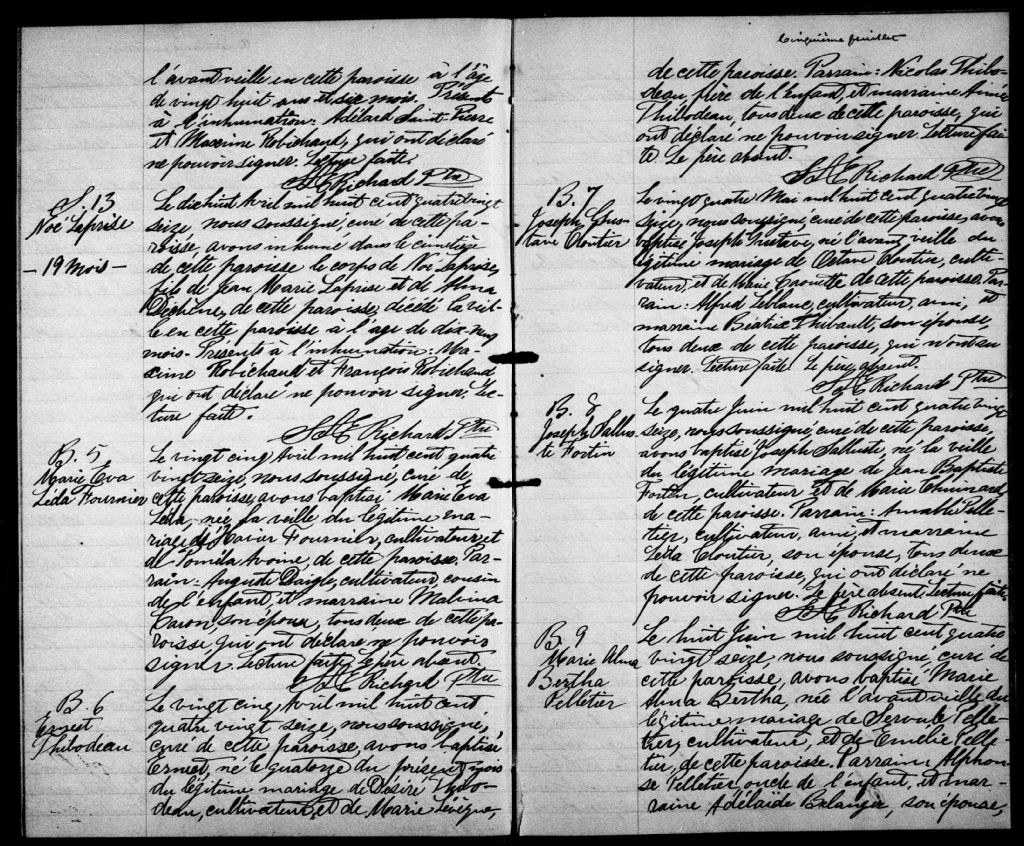 l'avant veille en cette paroisse à l'âge
de vingt huit ans et six mois. Présents
à l'inhumation: Adélard Saint Pierre
et Maxime Robichaud, qui ont déclaré
ne pouvoir signer. Lecture faite.
Richard Ptre
S. 13
Noé Laprise
- 19 mois -
Le dix huit Avril mil huit cent quatre vingt
seize, nous soussigné, curé de cette pa-
roisse, avons inhumé dans le cimetière
de cette paroisse le corps de Noé Laprise,
fils de Jean Marie Laprise et de Alma
Déchène, de cette paroisse, décédé la veil-
le en cette paroisse à l'âge de dix-neuf
mois. Présents à l'inhumation: Ma-
xime Robichaud et François Robichaud
qui ont déclaré ne pouvoir signer. Lec-
ture faite.
Richard Ptre
B. 5
Marie Eva
Léda Fournier
Le vingt cinq Avril mil huit cent quatre
vingt seize, nous soussigné, curé de
cette paroisse, avons baptisé Marie Eva
Léda, née la veille du légitime ma-
riage de Xavier Fournier, cultivateur, et
de Avoine, de cette paroisse. Par-
rain: Auguste Daigle, cultivateur, cousin
de l'enfant, et marraine Malvina
Caron, son épouse, tous deux de cette pa-
roisse, qui ont déclaré ne pouvoir
signer. Lecture faite. Le père absent.
Richard Ptre
B. 6
Ernest
Thibodeau
Le vingt cinq Avril mil huit cent
quatre vingt seize, nous soussigné,
curé de cette paroisse, avons baptisé
Ernest, né le quatorze du présent mois
du légitime mariage de Désiré Thibo-
deau, cultivateur, et de Marie Lévêque,
Cinquième feuillet
de cette paroisse. Parrain: Nicolas Thibo-
deau, père de l'Enfant, et marraine
Thibodeau, tous deux de cette paroisse, qui
ont déclaré ne pouvoir signer. Lecture fai-
te. Le père absent.
Richard Ptre
B. 7
Joseph Gus-
tave Cloutier
Le vingt quatre Mai mil huit cent quatre vingt
seize, nous soussigné, curé de cette paroisse, avons
baptisé Joseph Gustave, né l'avant veille du
légitime mariage de Octave Cloutier, culti-
vateur, et de Marie Caouette de cette paroisse. Par-
rain: Alfred Leblanc, cultivateur, ami, et
marraine Béatrix Thibault, son épouse,
tous deux de cette paroisse, qui n'ont su
signer. Lecture faite. Le père absent.
Richard Ptre
B. 8
Joseph Sallus-
te Fortin
Le quatre Juin mil huit cent quatre vingt
seize, nous soussigné, curé de cette paroisse,
avons baptisé Joseph Salluste, né la veille
du légitime mariage de Jean Baptiste
Fortin, cultivateur et de Marie Chuinard,
de cette paroisse. Parrain: Amable Pelle-
tier, cultivateur, ami, et marraine
Léda Cloutier, son épouse, tous deux
de cette paroisse, qui ont déclaré ne
pouvoir signer. Le père absent. Lecture faite.
Richard Ptre
B. 9
Marie Alma
Bertha
Pelletier
Le huit Juin mil huit cent quatre
vingt seize, nous soussigné, curé de
cette paroisse, avons baptisé Marie
Alma Bertha, née l'avant veille du
légitime mariage de Servule Pelle-
tier, cultivateur, et de Emélie Pelle-
tier, de cette paroisse. Parrain: Alphon-
se Pelletier, oncle de l'enfant, et mar-
raine Adélaïde Bélanger, son épouse,